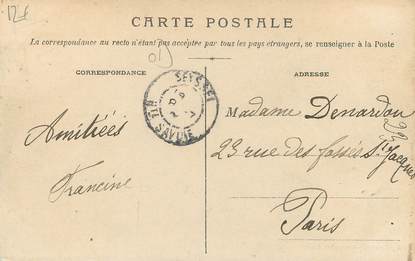 12f
CARTE POSTALE
La correspondance au recto n'étant pas acceptée par tous les pays étrangers, se renseigner à la Poste
CORRESPONDANCE
ADRESSE
SEYSSEL
HTE SAVOIE
Amitiées
Francine
Madame Denardou
23 rue des fossés St Jacques
Paris